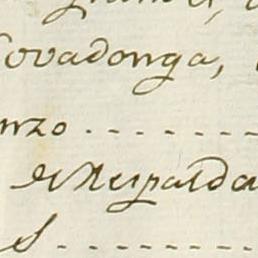 Covadonga,
nzo . . . . . . .
de Respalda
s . . . . . . . .